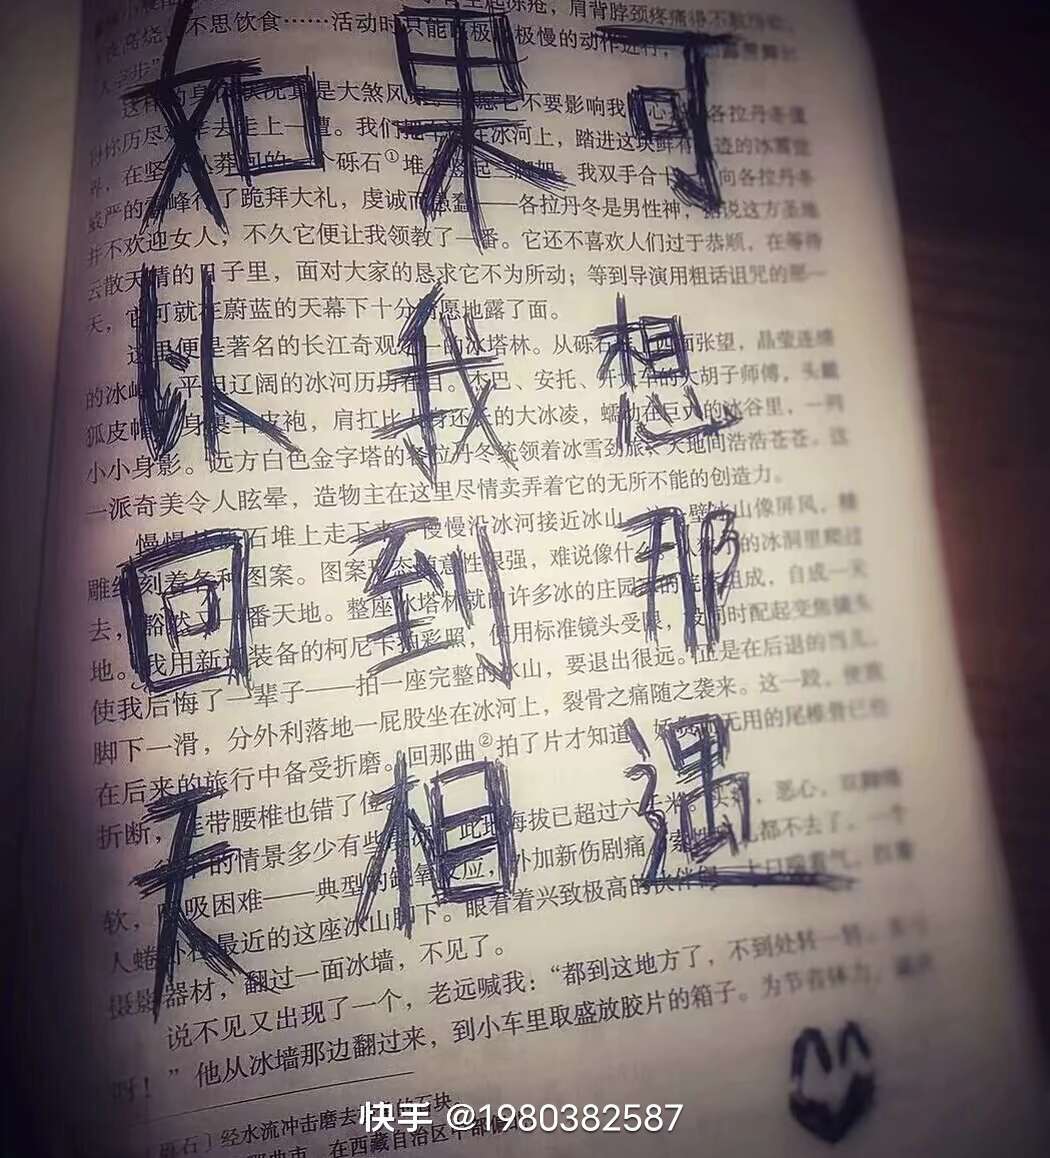 如果可
以我想
回到那
天相遇
不思饮食……活动时只能
是大煞风
不要影响我
各拉丹冬
历尽
去走上一遭。我们
在冰河上，踏进这块
迹的冰雪世
界，在坚
个砾石①堆
我双手合十
向各拉丹冬
威严的
峰行了跪拜大礼，虔诚而愚蠢——各拉丹冬是男性神，据说这方圣地
并不欢迎女人，不久它便让我领教了一番。它还不喜欢人们过于恭顺，在等待
云散天晴的日子里，面对大家的恳求它不为所动；等到导演用粗话诅咒的那一
天，它可就在蔚蓝的天幕下十分情愿地露了面。
这里便是著名的长江奇观之一的冰塔林。从砾石
四面张望，晶莹连绵
的冰峰、平坦辽阔的冰河历历在目。杰巴、安托、开大车的大胡子师傅，头戴
狐皮帽，身裹羊皮袍，肩扛比人身还长的大冰凌，蠕动在巨大的冰谷里，一列
小小身影。远方白色金字塔的各拉丹冬统领着冰雪劲旅，天地间浩浩苍苍。这
一派奇美令人眩晕，造物主在这里尽情卖弄着它的无所不能的创造力。
慢慢从
石堆上走下来，慢慢沿冰河接近冰山。这一壁冰山像屏风，精
雕细刻着各种图案。图案形态随意性很强，难说像什么。从狭小的冰洞里爬过
去，豁然又一番天地。整座冰塔林就由许多冰的庄园冰的院落组成，自成一天
地。我用新近装备的柯尼卡拍彩照，使用标准镜头受限，没同时配起变焦镜头
使我后悔了一辈子——拍一座完整的冰山，要退出很远。正是在后退的当儿，
脚下一滑，分外利落地一屁股坐在冰河上，裂骨之痛随之袭来。这一跤，使我
在后来的旅行中备受折磨。回那曲②拍了片才知道，妖贵而无用的尾椎骨已经
折断，连带腰椎也错了位。
的情景多少有些
此地海拔已超过六千米。头
，恶心，双脚绵
软，呼吸困难——典型的缺氧反应，外加新伤剧痛，索性
儿都不去了。一个
人蜷卧在最近的这座冰山脚下。眼看着兴致极高的伙伴们大口喘着气，扛着
摄影器材，翻过一面冰墙，不见了。
说不见又出现了一个，老远喊我：“都到这地方了，不到处转一转，多
呀！”他从冰墙那边翻过来，到小车里取盛放胶片的箱子。为节省体力，
石〕经水流冲击磨去
的石块。
在西藏自治区中部偏
快手 @1980382587